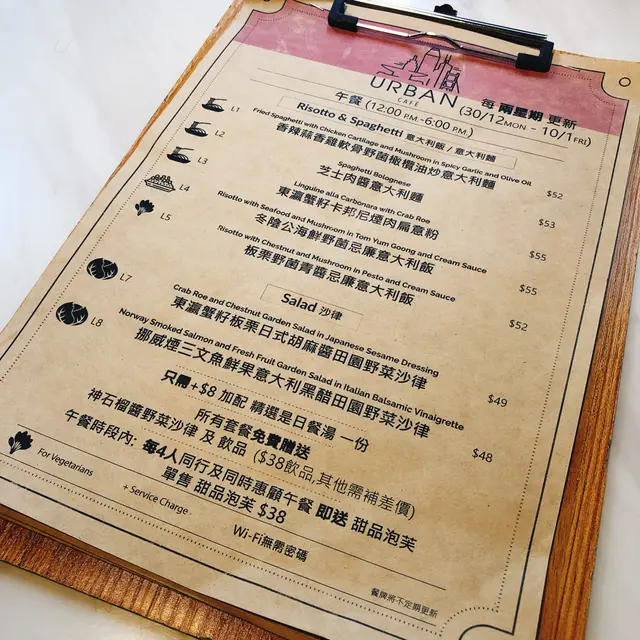 URBAN
CAFE
每兩星期更新
午餐 (12:00 P.M.-6:00 P.M.) (30/12MON - 10/1FRI)
Risotto & Spaghetti 意大利飯 / 意大利麵
L1 Fried Spaghetti with Chicken Cartilage and Mushroom in Spicy Garlic and Olive Oil
香辣蒜香雞軟骨野菌橄欖油炒意大利麵 $52
L2 Spaghetti Bolognese
芝士肉醬意大利麵 $53
L3 Linguine alla Carbonara with Crab Roe
東瀛蟹籽卡邦尼煙肉扁意粉 $55
L4 Risotto with Seafood and Mushroom in Tom Yum Goong and Cream Sauce
冬陰公海鮮野菌忌廉意大利飯 $55
L5 Risotto with Chestnut and Mushroom in Pesto and Cream Sauce
板栗野菌青醬忌廉意大利飯 $52
Salad 沙律
L7 Crab Roe and Chestnut Garden Salad in Japanese Sesame Dressing
東瀛蟹籽板栗日式胡麻醬田園野菜沙律 $49
L8 Norway Smoked Salmon and Fresh Fruit Garden Salad in Italian Balsamic Vinaigrette
挪威煙三文魚鮮果意大利黑醋田園野菜沙律 $48
只需 +$8 加配 精選是日餐湯 一份
所有套餐免費贈送
神石榴醬野菜沙律 及 飲品 ($38飲品,其他需補差價)
午餐時段內: 每4人同行及同時惠顧午餐 即送 甜品泡芙
單售 甜品泡芙 $38
For Vegetarians
+ Service Charge
Wi-Fi無需密碼
餐牌將不定期更新